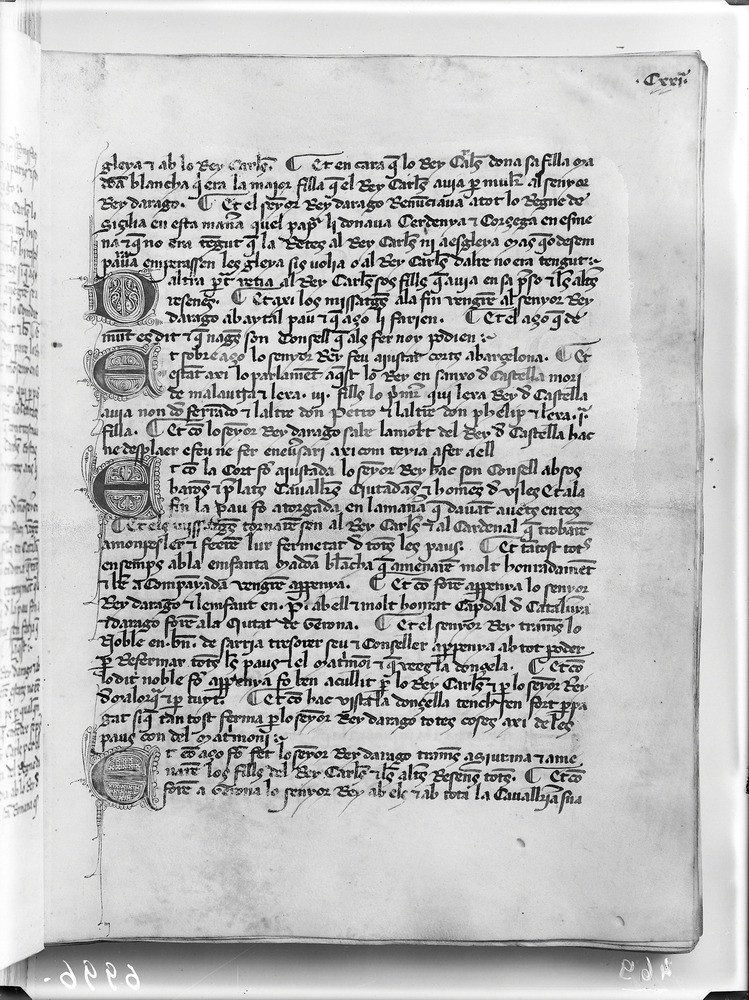 · Cxxi ·
gleya ⁊ ab lo Rey Carls̄. ¶ Et en cara q̄ lo Rey Carls̄ dona sa filla ma
dōa blancha q̄ era la maior filla q̄ el Rey Carls̄ auia ꝑ mulr̄ al senyor
Rey darago. ¶ Et el senyor Rey darago Renūciaua atot lo Regne de
Sicilia en esta manr̄a quel papa li donaua Cerdenya ⁊ Corsega en esme
na ⁊ q̄ no era tēgut q̄ la Retes al Rey Carls̄ ni a esgleya mas q̄o desem
paraua emperassen les gleya sis volia o al Rey Carls̄ daltre no era tengut
altra ꝑt retia al Rey Carls̄ sos fills q̄ auia en sa p̄so ⁊ ls̄ alts̄
resenes. ¶ Et axi los missatgs̄ ala fin vengrē al senyor Rey
darago ab aytal pau ⁊ q̄ aço li farien. ¶ Et el aço q̄ de
mūt es dit ⁊ q̄ nages son Consell q̄ als fer noy podien
Et sobre aço lo senyor Rey feu aiustar corts abarçelona. ¶ Et
estāt axi lo parlamēt aq̄st lo Rey en sanxo d̄ Castella mori
de malautia ⁊ lexa .iij. fills lo p̄mr̄ qui lexa Rey d̄ Castella
auia nom dō ferrādo ⁊ laltre don Petro ⁊ laltre don phelip ⁊ lexa .i.
filla. ¶ Et cō lo senyor Rey darago sabe la mort del Rey d̄ Castella hac
ne desplaer e feu ne fer eneūsari axi com teria a fer aell
Et cō la Cort fō aiustada lo senyor Rey hac son Consell ab sos
barōs ⁊ ꝑlats Cauallr̄s Ciutadās ⁊ homēs d̄ viles Et ala
fin la pau fō atorgada en lamanr̄a q̄ dauāt auets entes
¶ Et els missatgēs tornarē sen al Rey Carls̄ ⁊ al Cardenal q̄ trobarē
amonpesler ⁊ feerē lur fermetat d̄ tots les paus. ¶ Et tātost tots
ensemps ab la emfanta madōa blācha q̄ amenarē molt honradamēt
⁊ bē aCompayada vengrē appenya. ¶ Et cō forē appenya lo senyor
Rey darago ⁊ lenfant en .P. ab ell ⁊ molt honrat Capdal d̄ Cataluya
⁊ darago forē ala Ciutat de Gerona. ¶ Et el senyor Rey trams̄ lo
Noble en .bn̄. de sarria tresorer seu ⁊ Conseller appenya ab tot poder
ꝑ Refermar tots ls̄ paus ⁊ el matrmōi ⁊ q̄ vees la dongela. ¶ Et cō
lo dit noble fō appenya fo ben acullit ꝑ lo Rey Carls̄ ⁊ ꝑ lo senyor Rey
d̄ malorq̄ ⁊ ꝑ tuyt. ¶ Et cō hac vista la dongella tench sen fort ꝑ pa
gat si q̄ tan tost ferma ꝑ lo senyor Rey darago totes coses axi de les
paus con del matrmoni
Et cō aço fō fet lo senyor Rey darago trams̄ a Siurana ⁊ ame
narē los fills del Rey Carls̄ ⁊ ls̄ alts̄ Resens tots. ¶ Et cō
forē a Gerona lo senyor Rey ab els ⁊ ab tota la Caualleria sua
6996.
469